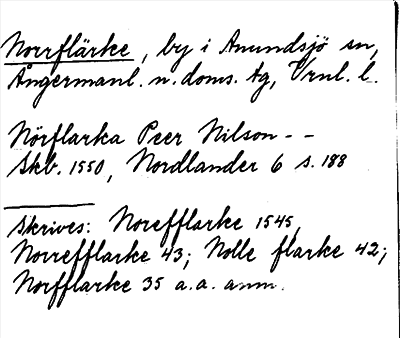 Norrflärke, by i Anundsjö sn,
Ångermanl. n. doms. tg, Vrnl. l.
Nörflarka Peer Nilson - -
Skb. 1550, Nordlander 6 s. 188
Skrives: Norefflarke 1545,
Norrefflarke 43; Nolle flarke 42;
Norfflarke 35 a.a. anm.